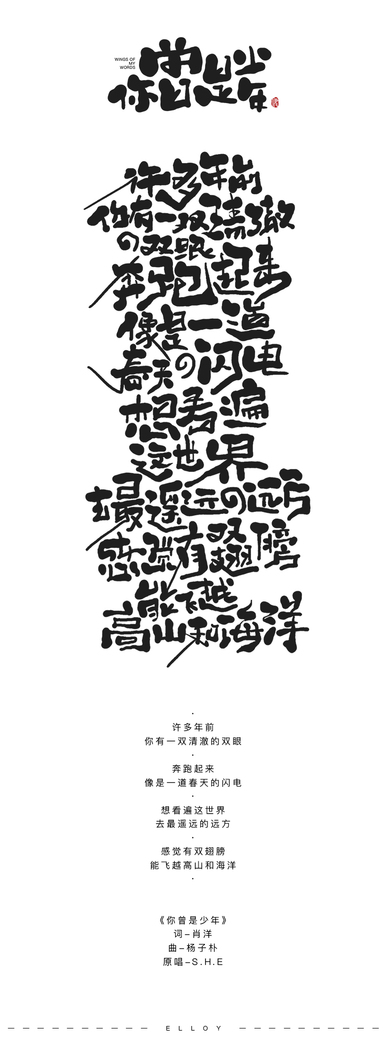 你曾是少年
WINGS OF
MY
WORDS
许多年前
你有一双清澈
の双眼
奔跑起来
像是一道
春天の闪电
想看遍
这世界
去最遥远の远方
感觉有双翅膀
能飞越
高山和海洋
·
许多年前
你有一双清澈的双眼
·
奔跑起来
像是一道春天的闪电
·
想看遍这世界
去最遥远的远方
·
感觉有双翅膀
能飞越高山和海洋
·
《你曾是少年》
词–肖洋
曲–杨子朴
原唱–S.H.E
ELLOY